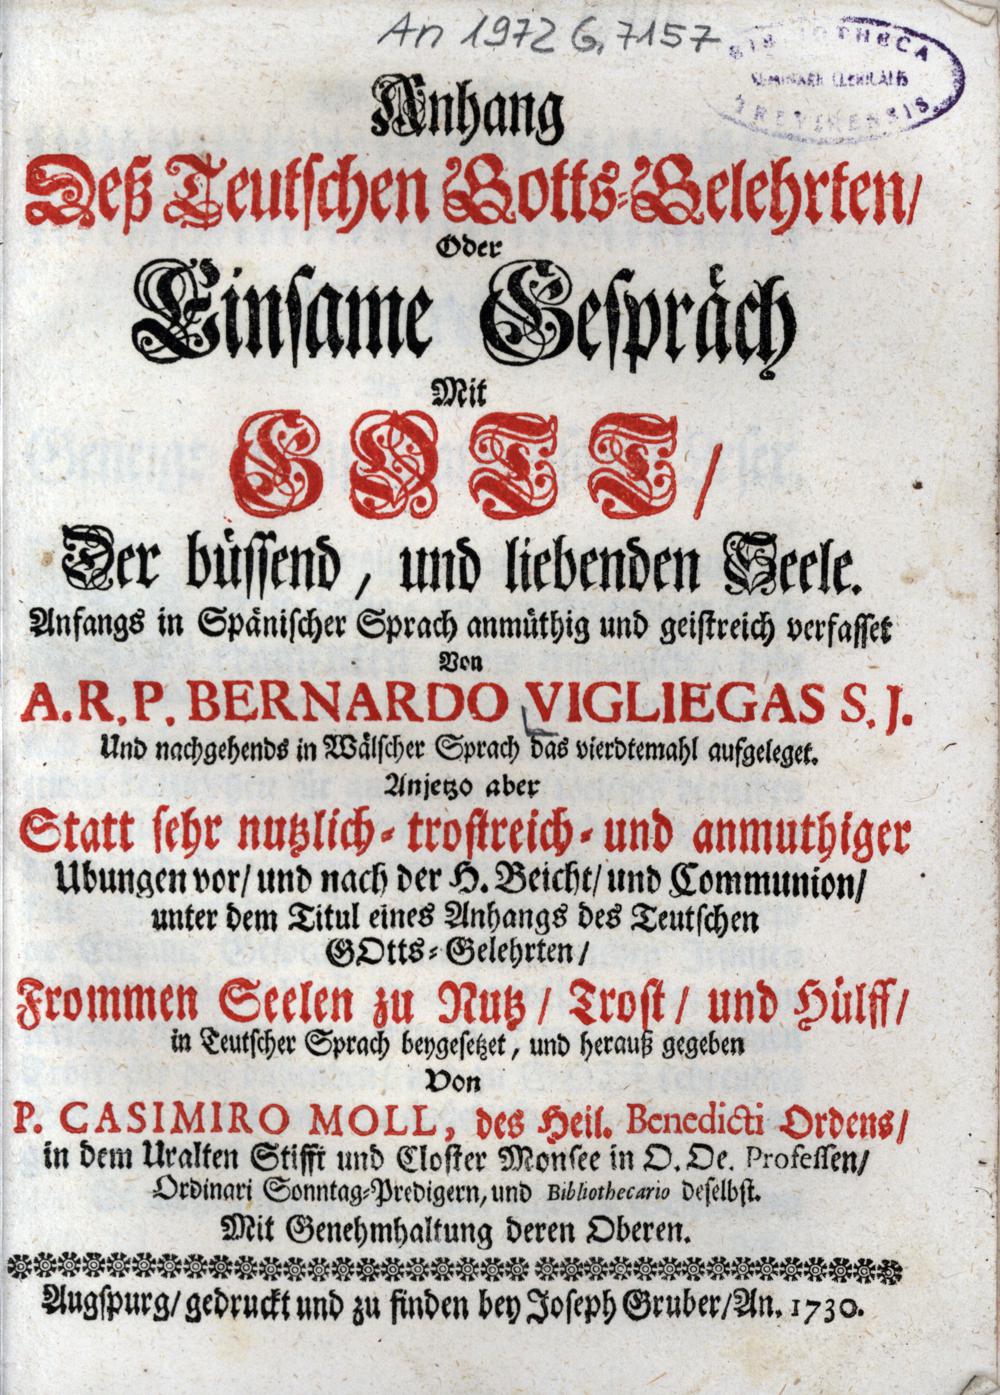 An 1972 G. 7157
BIBLIOTHECA
SEMINARII CLERICALIS
TREVIRENSIS
Anhang
Deß Teutschen Gotts-Gelehrten/
Oder
Einsame Gespräch
Mit
GOTT/
Der büssend, und liebenden Seele.
Anfangs in Spänischer Sprach anmüthig und geistreich verfasset
Von
A.R.P. BERNARDO VIGLIEGAS S.J.
Und nachgehends in Wälscher Sprach das vierdtemahl aufgeleget.
Anjetzo aber
Statt sehr nutzlich- trostreich- und anmuthiger
Ubungen vor/ und nach der H. Beicht/ und Communion/
unter dem Titul eines Anhangs des Teutschen
GOtts-Gelehrten/
Frommen Seelen zu Nutz/ Trost/ und Hülff/
in Teutscher Sprach beygesetzet, und herauß gegeben
Von
P. CASIMIRO MOLL, des Heil. Benedicti Ordens/
in dem Uralten Stifft und Closter Monsee in O.Oe. Professen/
Ordinari Sonntag-Predigern, und Bibliothecario deselbst.
Mit Genehmhaltung deren Oberen.
Augspurg/ gedruckt und zu finden bey Joseph Gruber/ An. 1730.